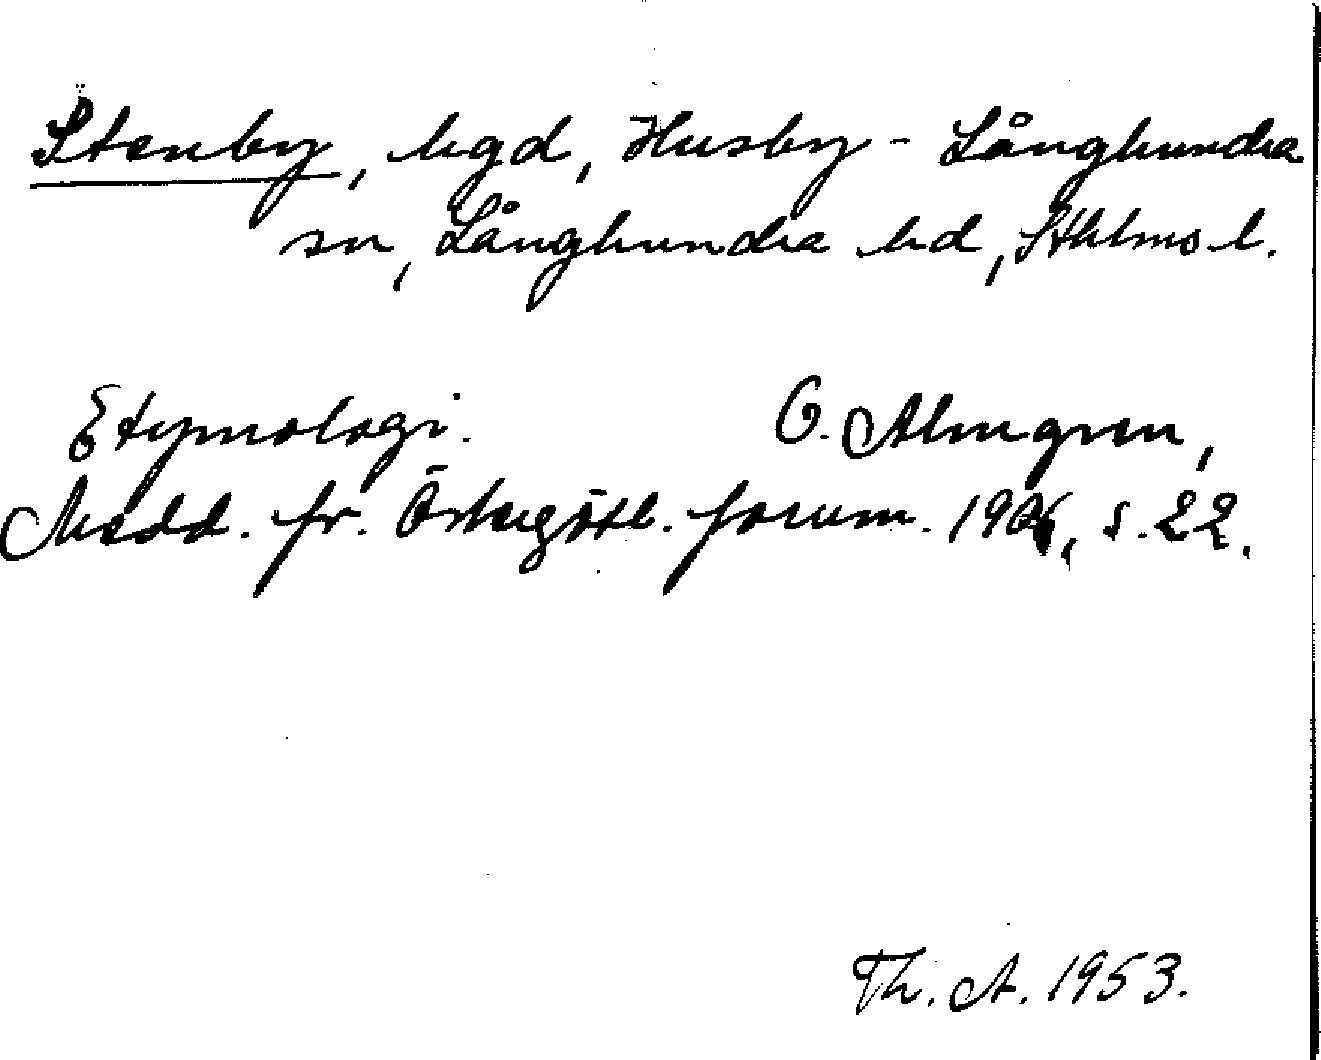 Stenby, hgd, Husby-Långhundra
sn, Långhundra hd, Sthlms l.
Etymologi. O. Almgren,
Medd. fr. Östergötl. fornm. 1906, s. 22.
Th. A. 1953.